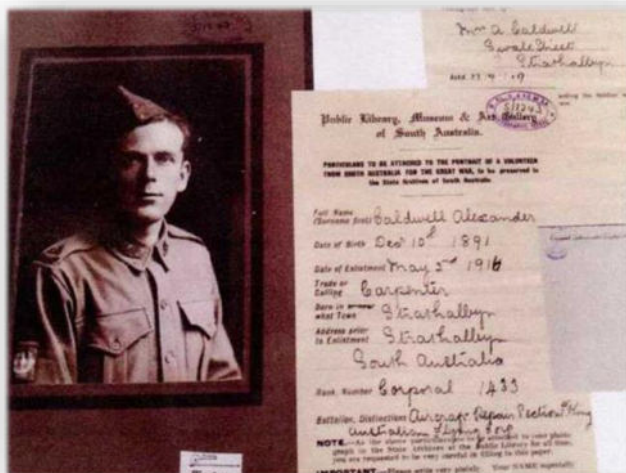 Mrs A Caldwell
Swale Street
Strathalbyn
Public Library, Museum & Art Gallery
of South Australia.
PARTICULARS TO BE ATTACHED TO THE PORTRAIT OF A VOLUNTEER
FROM SOUTH AUSTRALIA FOR THE GREAT WAR, to be preserved in
the State Archives of South Australia
Full Name
(Surname first) Caldwell Alexander
Date of Birth Decr 10th 1891
Date of Enlistment May 2nd 1916
Trade or
Calling Carpenter
Born in
what Town Strathalbyn
Address prior
to Enlistment Strathalbyn
South Australia
Rank, Number Corporal 1433
Battalion, Distinctions Aircraft Repair Section
Australian Flying Corp
NOTE.—As the above particulars are to be attached to your photo
graph in the State Archives at the Public Library for all time,
you are requested to be very careful in filling in this paper.
IMPORTANT.—Please write very plainly. Your NAME especially